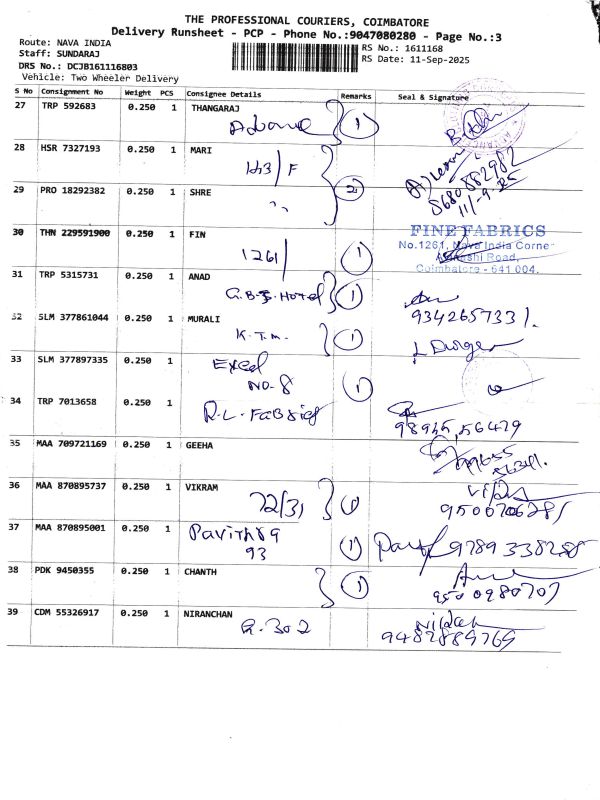 THE PROFESSIONAL COURIERS, COIMBATORE
Delivery Runsheet - PCP - Phone No.:9047080280 - Page No.:3
Route: NAVA INDIA
Staff: SUNDARAJ
DRS No.: DCJB161116803
Vehicle: Two Wheeler Delivery
RS No.: 1611168
RS Date: 11-Sep-2025
S No Consignment No Weight PCS Consignee Details Remarks Seal & Signature
27 TRP 592683 0.250 1 THANGARAJ
1
28 HSR 7327193 0.250 1 MARI
H3/F
8680882982
11/-9-25
29 PRO 18292382 0.250 1 SHRE
2
30 THN 229591900 0.250 1 FIN
1261/
1
FINE FABRICS
No.1261, Nava India Corner
Avinashi Road,
Coimbatore - 641 004.
31 TRP 5315731 0.250 1 ANAD
G.B.S. HOTEL
1
9342657331.
32 SLM 377861044 0.250 1 MURALI
K.T.M.
1
33 SLM 377897335 0.250 1
Excel
NO-8
1
34 TRP 7013658 0.250 1
R.L. FABRICS
98945,56479
35 MAA 709721169 0.250 1 GEEHA
36 MAA 870895737 0.250 1 VIKRAM
72/31
1
9500706281
37 MAA 870895001 0.250 1
Pavithra
93
1
9789338258
38 PDK 9450355 0.250 1 CHANTH
1
9500980707
39 CDM 55326917 0.250 1 NIRANCHAN
G.302
9487889769